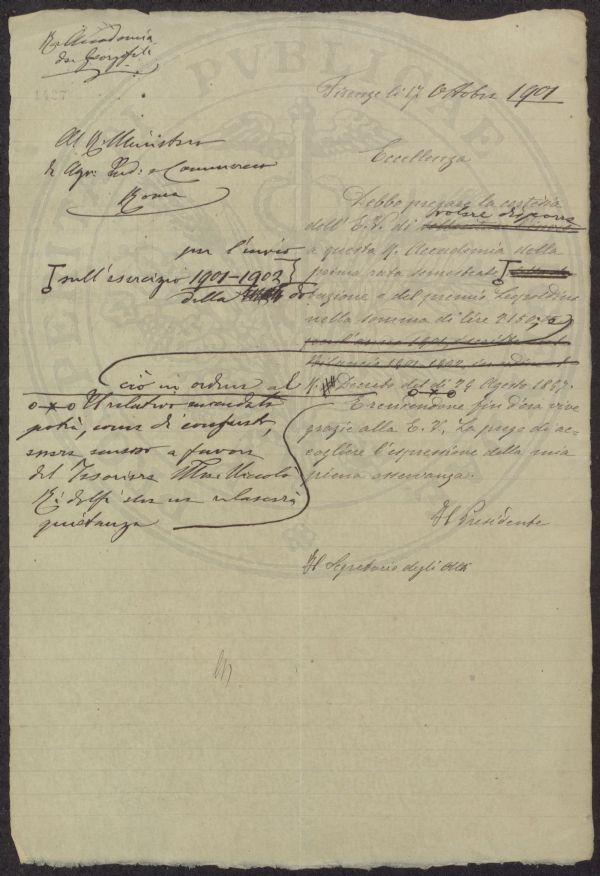 R. Accademia
dei Georgofili
1427
Firenze li 17 Ottobre 1901
Al R. Ministero
di Agr. Ind: e Commercio
Roma
Eccellenza
Debbo pregare la cortesia
dell'E. V. di volere disporre
per l'invio a questa R. Accademia della
sull'esercizio 1901-1902
prima rata semestrale
della dotazione e del premio Leopoldino
nella somma di lire
per l'anno 1901
Bilancio 1901-1902, in ordine al
ciò in ordine al R. Decreto del dì 26 Agosto 1897.
Il relativo mandato
potrà, come di consueto,
essere emesso a favore
del Tesoriere Niccolò
Ridolfi che ne rilascerà
quietanza
E rendendone fin d'ora vive
grazie alla E. V. La prego di ac-
cogliere l'espressione della mia
piena osservanza.
Il Presidente
Il Segretario degli Atti